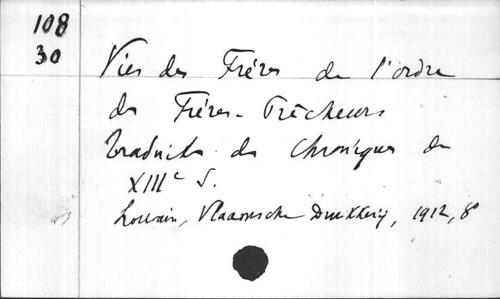 108
30
Vies des Frères de l'ordre
des Frères-Prêcheurs
traduites des chroniques du
XIIIe S.
Louvain, Vlaamsche Drukkerij, 1912, 8°